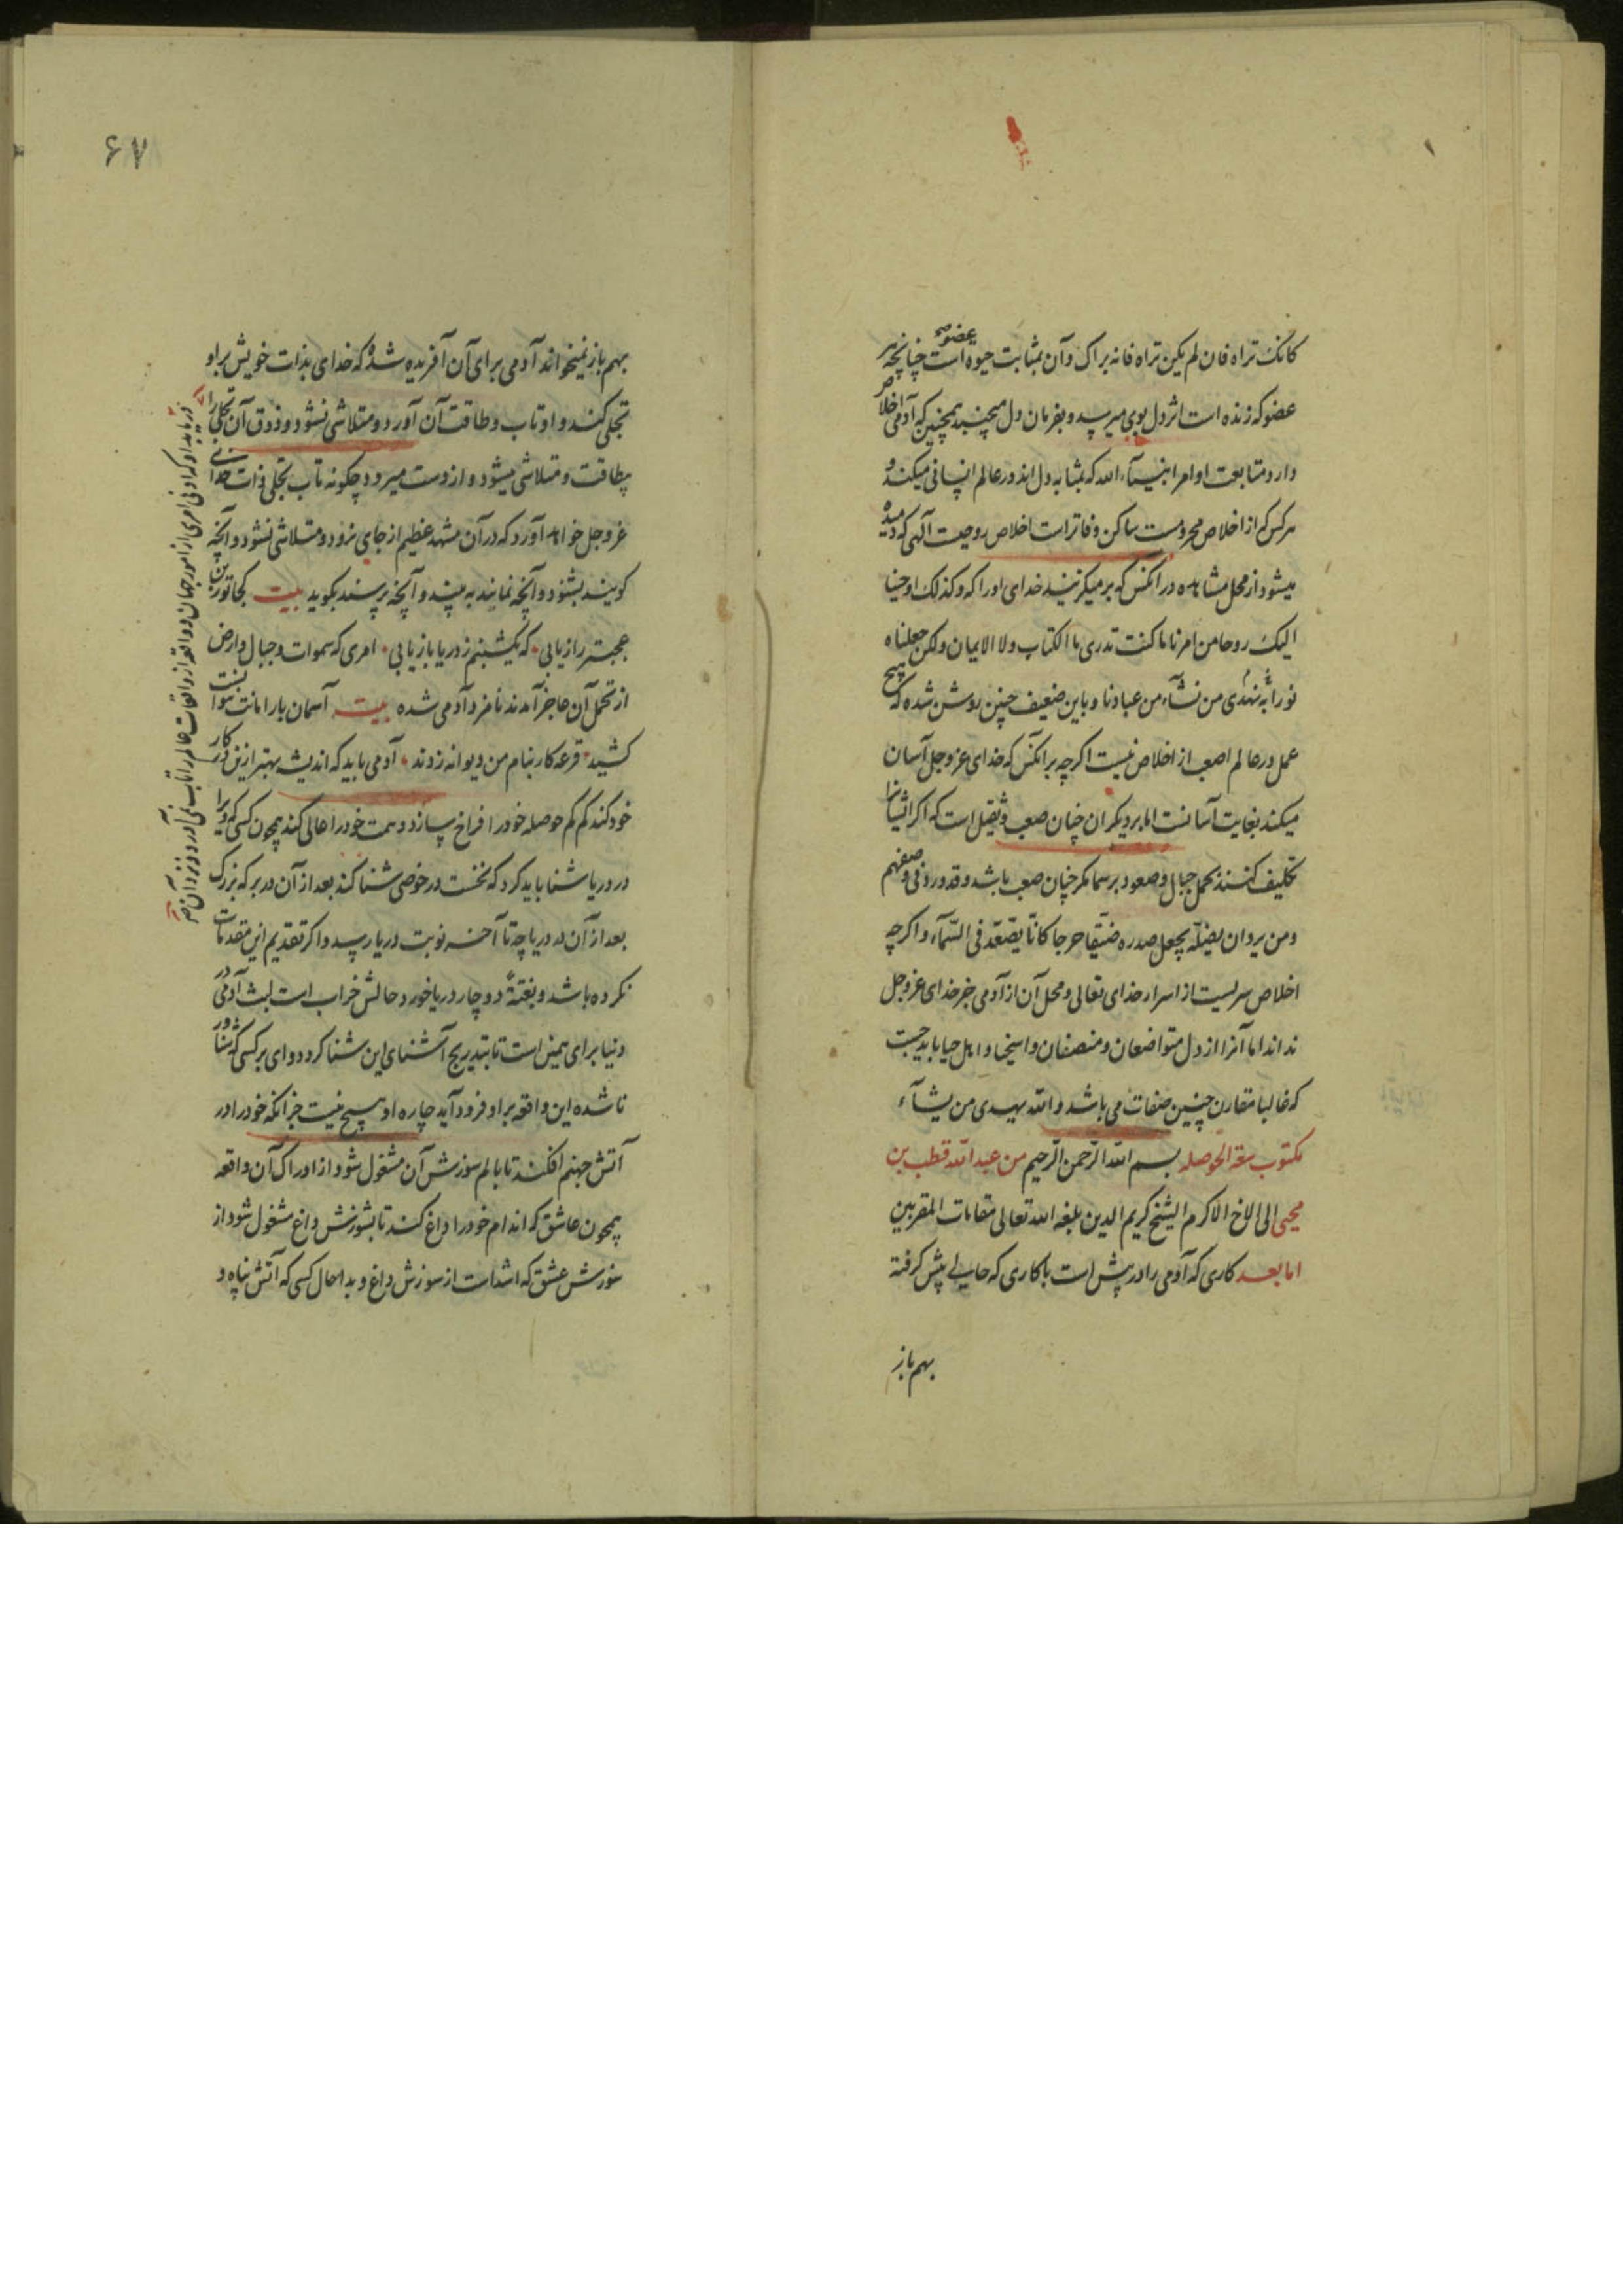 کانک تراه فان لم یکن تراه فانه یراک و آن بمثابت حیوة عضو است چنانچه هر
عضو که زنده است اثر دل بوی میرسد و بفرمان دل میجنبد همچنین که آدمی اخلاص
دارد متابعت اوامر انبیآء الله که بمثابه دل اند در عالم انسانی میکند و
هر کس که از اخلاص محرومست ساکن و فاتر است اخلاص روحیت آلهی که دمیده
میشود از محل مشاهده در انکس که بر میکزیند خدای او را که و کذلک اوحینا
الیک روحا من امرنا ما کنت تدری ما الکتاب ولا الایمان ولکن جعلناه
نورا نهدی به من نشآء من عبادنا و باین ضعیف چنین روشن شده که هیچ
عمل در عالم اصعب از اخلاص نیست اکرچه بر انکس که خدای عز وجل آسان
میکند بغایت آسانست اما بر دیکران چنان صعب و ثقیل است که اکر ایشانرا
تکلیف کنند بحمل جبال و صعود بر سما مکر چنان صعب باشد و قد ورد فی وصفهم
ومن یرد ان یضله یجعل صدره ضیقا حرجا کانما یصعد فی السمآء و اکرچه
اخلاص سریست از اسرار خدای تعالی و محل آن از آدمی جز خدای عز وجل
نداند اما آنرا از دل متواضعان و منصفان و اسخیا و اهل حیا باید جست
که غالبا مقارن چنین صفات می باشد والله یهدی من یشآء
مکتوب سعة الحوصله بسم الله الرحمن الرحیم من عبد الله قطب بن
محیی الی الاخ الاکرم الشیخ کریم الدین بلغه الله تعالی مقامات المقربین
اما بعد کاری که آدمی را در پیش است با کاری که حالی پیش کرفته
بهم باز
۶۷
بهم باز نمیخواند آدمی برای آن آفریده شده که خدای بذات خویش بر او
تجلی کند و او تاب و طاقت آن آورد و متلاشی نشود و ذوق آن تجلی را
دریابد او که ادنی امری از امور جهان و واقعه از واقعات عالم را تاب نمی آرد و نزد آن
بیطاقت و متلاشی میشود و از دست میرود چکونه تاب تجلی ذات خدای
عز وجل خواهد آورد که در آن مشهد عظیم از جای نرود و متلاشی نشود و آنچه
کویند بشنود و آنچه نمایند به بیند و آنچه پرسند بکوید بیت کجا تو زین
عجبتر راز یابی که یکشبنم ز دریا باز یابی امری که سموات و جبال و ارض
از تحمل آن عاجز آمدند نامزد آدمی شده بیت آسمان بار امانت نتوانست
کشید قرعه کار بنام من دیوانه زدند آدمی باید که اندیشه بهتر ازین در کار
خود کند کم کم حوصله خود را فراخ سازد و همت خود را عالی کند همچون کسی که ویرا
در دریا شنا باید کرد که نخست در حوضی شنا کند بعد از آن در برکه بزرک
بعد از آن در دریاچه تا آخر نوبت دریا رسد و اکر تقدیم این مقدمات
نکرده باشد و بغتة دو چار دریا خورد حالش خراب است لبث آدمی در
دنیا برای همین است تا بتدریج آشنای این شنا کردد وای بر کسی که شناور
ناشده این واقعه بر او فرود آید چاره او هیچ نیست جز انکه خود را در
آتش جهنم افکند تا بالم سوزش آن مشغول شود از ادراک آن واقعه
همچون عاشق که اندام خود را داغ کند تا بسوزش داغ مشغول شود از
سوزش عشق که اشد است از سوزش داغ و بدا حال کسی که آتش پناه و